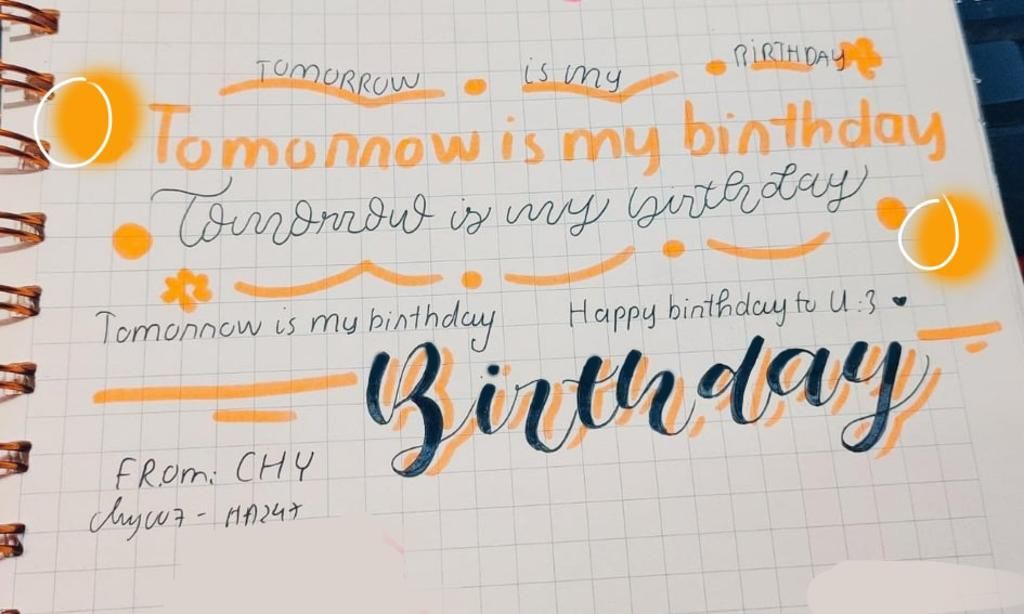 TOMORROW is my BIRTHDAY
Tomorrow is my birthday
Tomorrow is my birthday
Tomorrow is my birthday Happy birthday to U :3 ♥
Birthday
FROM: CHY